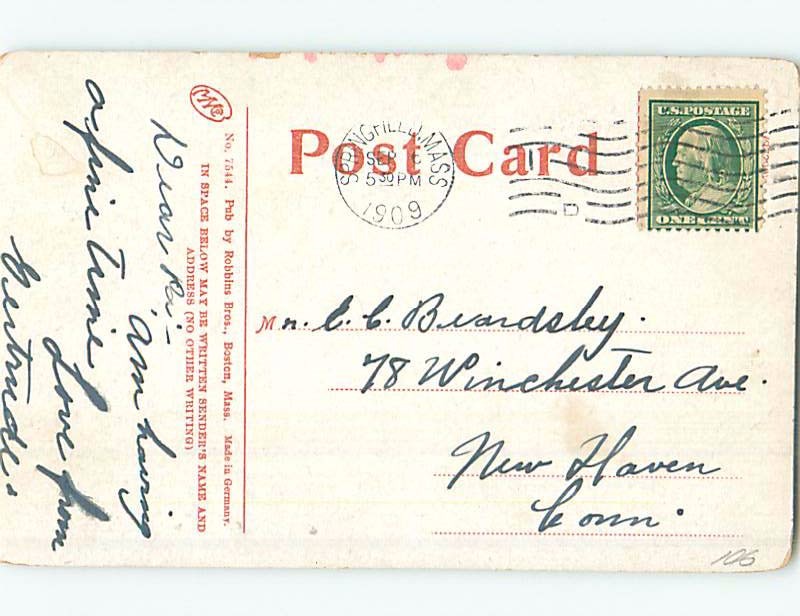 Post Card
SPRINGFIELD, MASS
SEP 6
5 30 PM
1909
D
U.S. POSTAGE
ONE CENT
Mr. E. C. Beardsley.
78 Winchester Ave.
New Haven
Conn.
106
No. 7544. Pub by Robbins Bros., Boston, Mass. Made in Germany.
IN SPACE BELOW MAY BE WRITTEN SENDER'S NAME AND
ADDRESS (NO OTHER WRITING)
Dear
Am having
a fine time
Love from
Gertrude.